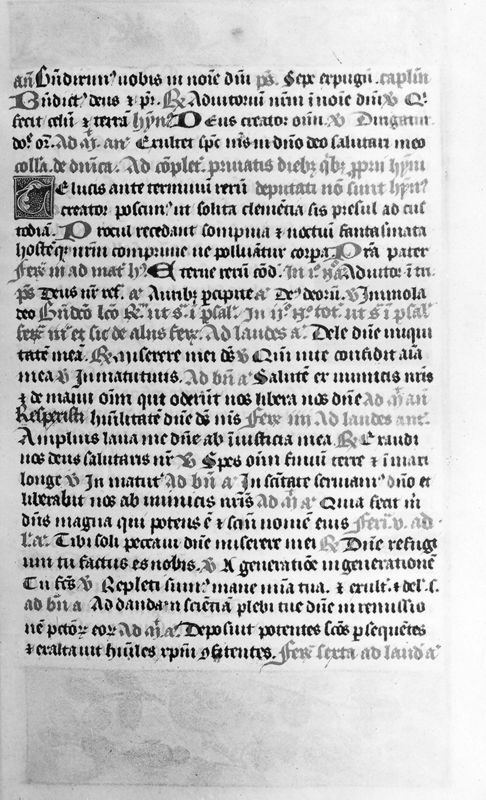 añ Bñdicim᷒ vobis in noīe dñi ps̄. Sepe expugñ. caplm̄
Bñdict᷒ deus & pr̄. R̷ Adiutoriū nr̄m ī noīe dñi V̷ Q.
fecit celū & terrā hyn᷒ Deus creator oīm. V̷ Dirigatur
do. or. Ad m̄. an̄ Exultet sp̄c me᷒ in dño deo salutari meo
colla. de dñica. Ad cōplet. priuatis dieb᷒ qb᷒ propri hym̄
Te lucis ante terminū rerū deputati nō sunt hyn᷒
creator poscim᷒ ut solita clemētia sis presul ad cus
todiā. Procul recedant sompnia & noctiū fantasmata
hostēq᷒ nr̄m comprime ne polluātur corpa Prā pater
Ferr̄ iii ad mat̄ h᷒ Eterne rerū cōd. In
ps̄ Deus nr̄ ref. a᷒ Aurib᷒ pcipite a᷒ De᷒ deorū. V̷ Immola
deo
et sic de aliis feriis. Ad laudes a᷒ Dele dñe iniqui
tatē meā. R̷ miserere mei ds̄ V̷ Qm̄ in te confidit aīa
mea V̷ In matutinis. Ad bñ a᷒ Salutē ex inimicis nr̄is
& de manu oīm qui oderūt nos libera nos dñe Ad m̄ an̄
Respexisti hūilitatē dñe Ferr̄ iiii Ad laudes ant᷒
Amplius laua me dñe ab ī iusticia mea R̷ Exaudi
nos deus salutaris nr̄ V̷ Spes oīm finiū terre & ī mari
longe V̷ In matut᷒ Ad bñ a᷒ In sc̄itate seruiam᷒ dño et
liberabit nos ab inimicis nr̄is Ad m̄ a᷒ Quia fecit m̄
dñs magna qui potens ē & scm̄ nomē eius Ferr̄ v. ad
l. a᷒ Tibi soli peccaui dñe miserere mei R̷ Dñe refugi
um tu factus es nobis. V̷ A generatiōe in generationē
Tu fc̄s V̷ Repleti sum᷒ mane mīa tua. & exult᷒. & del. s.
ad bñ a Ad dandā sciētiā plebi tue dñe in remissio
nē pctor̄ eor̄ Ad m̄ a᷒ Deposuit potentes sc̄os psequētes
& exaltauit hūiles xpm̄ ꝯfitentes. Ferr̄ sexta ad laud᷒ a᷒